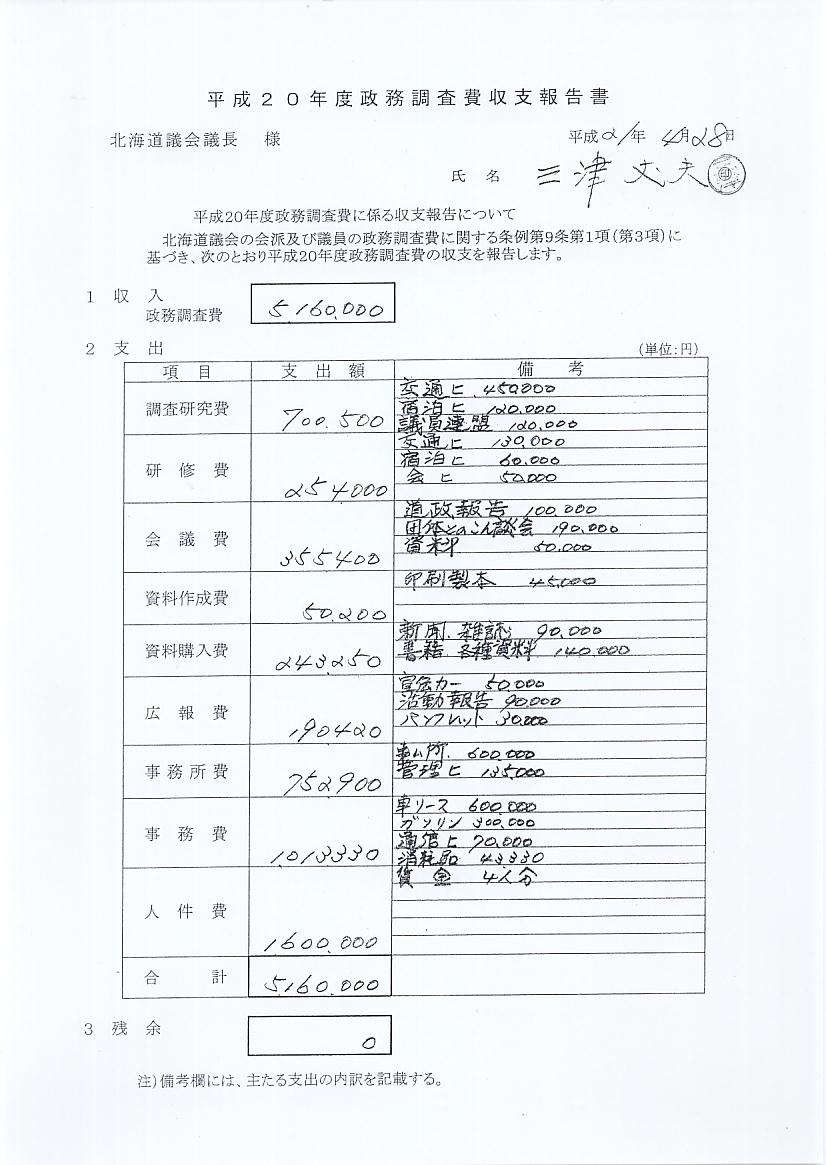 平成２０年度政務調査費収支報告書
北海道議会議長　様
平成21年4月28日
氏　名　三津丈夫 印
平成20年度政務調査費に係る収支報告について
北海道議会の会派及び議員の政務調査費に関する条例第9条第1項(第3項)に
基づき、次のとおり平成20年度政務調査費の収支を報告します。
１　収　入
政務調査費　5.160.000
２　支　出
(単位:円)
項　目　支　出　額　備　考
調査研究費　700.500
交通ヒ　450.000
宿泊ヒ　120.000
議員連盟　120.000
研　修　費　254000
交通ヒ　130.000
宿泊ヒ　60.000
会ヒ　50.000
会　議　費　355400
道政報告　100.000
団体とのこん談会　190.000
資料　50.000
資料作成費　50.200
印刷製本　45.000
資料購入費　243.250
新聞.雑誌　90.000
書籍　各種資料　140.000
広　報　費　190420
宣伝カー　50.000
活動報告　90.000
パンフレット　30.000
事務所費　752900
事ム所.　600.000
管理ヒ　135.000
事　務　費　1.013330
車リース　600.000
ガソリン　300.000
通信ヒ　70.000
消耗品　43330
人　件　費　1.600.000
賃　金　4人分
合　計　5.160.000
３　残　余　0
注)備考欄には、主たる支出の内訳を記載する。